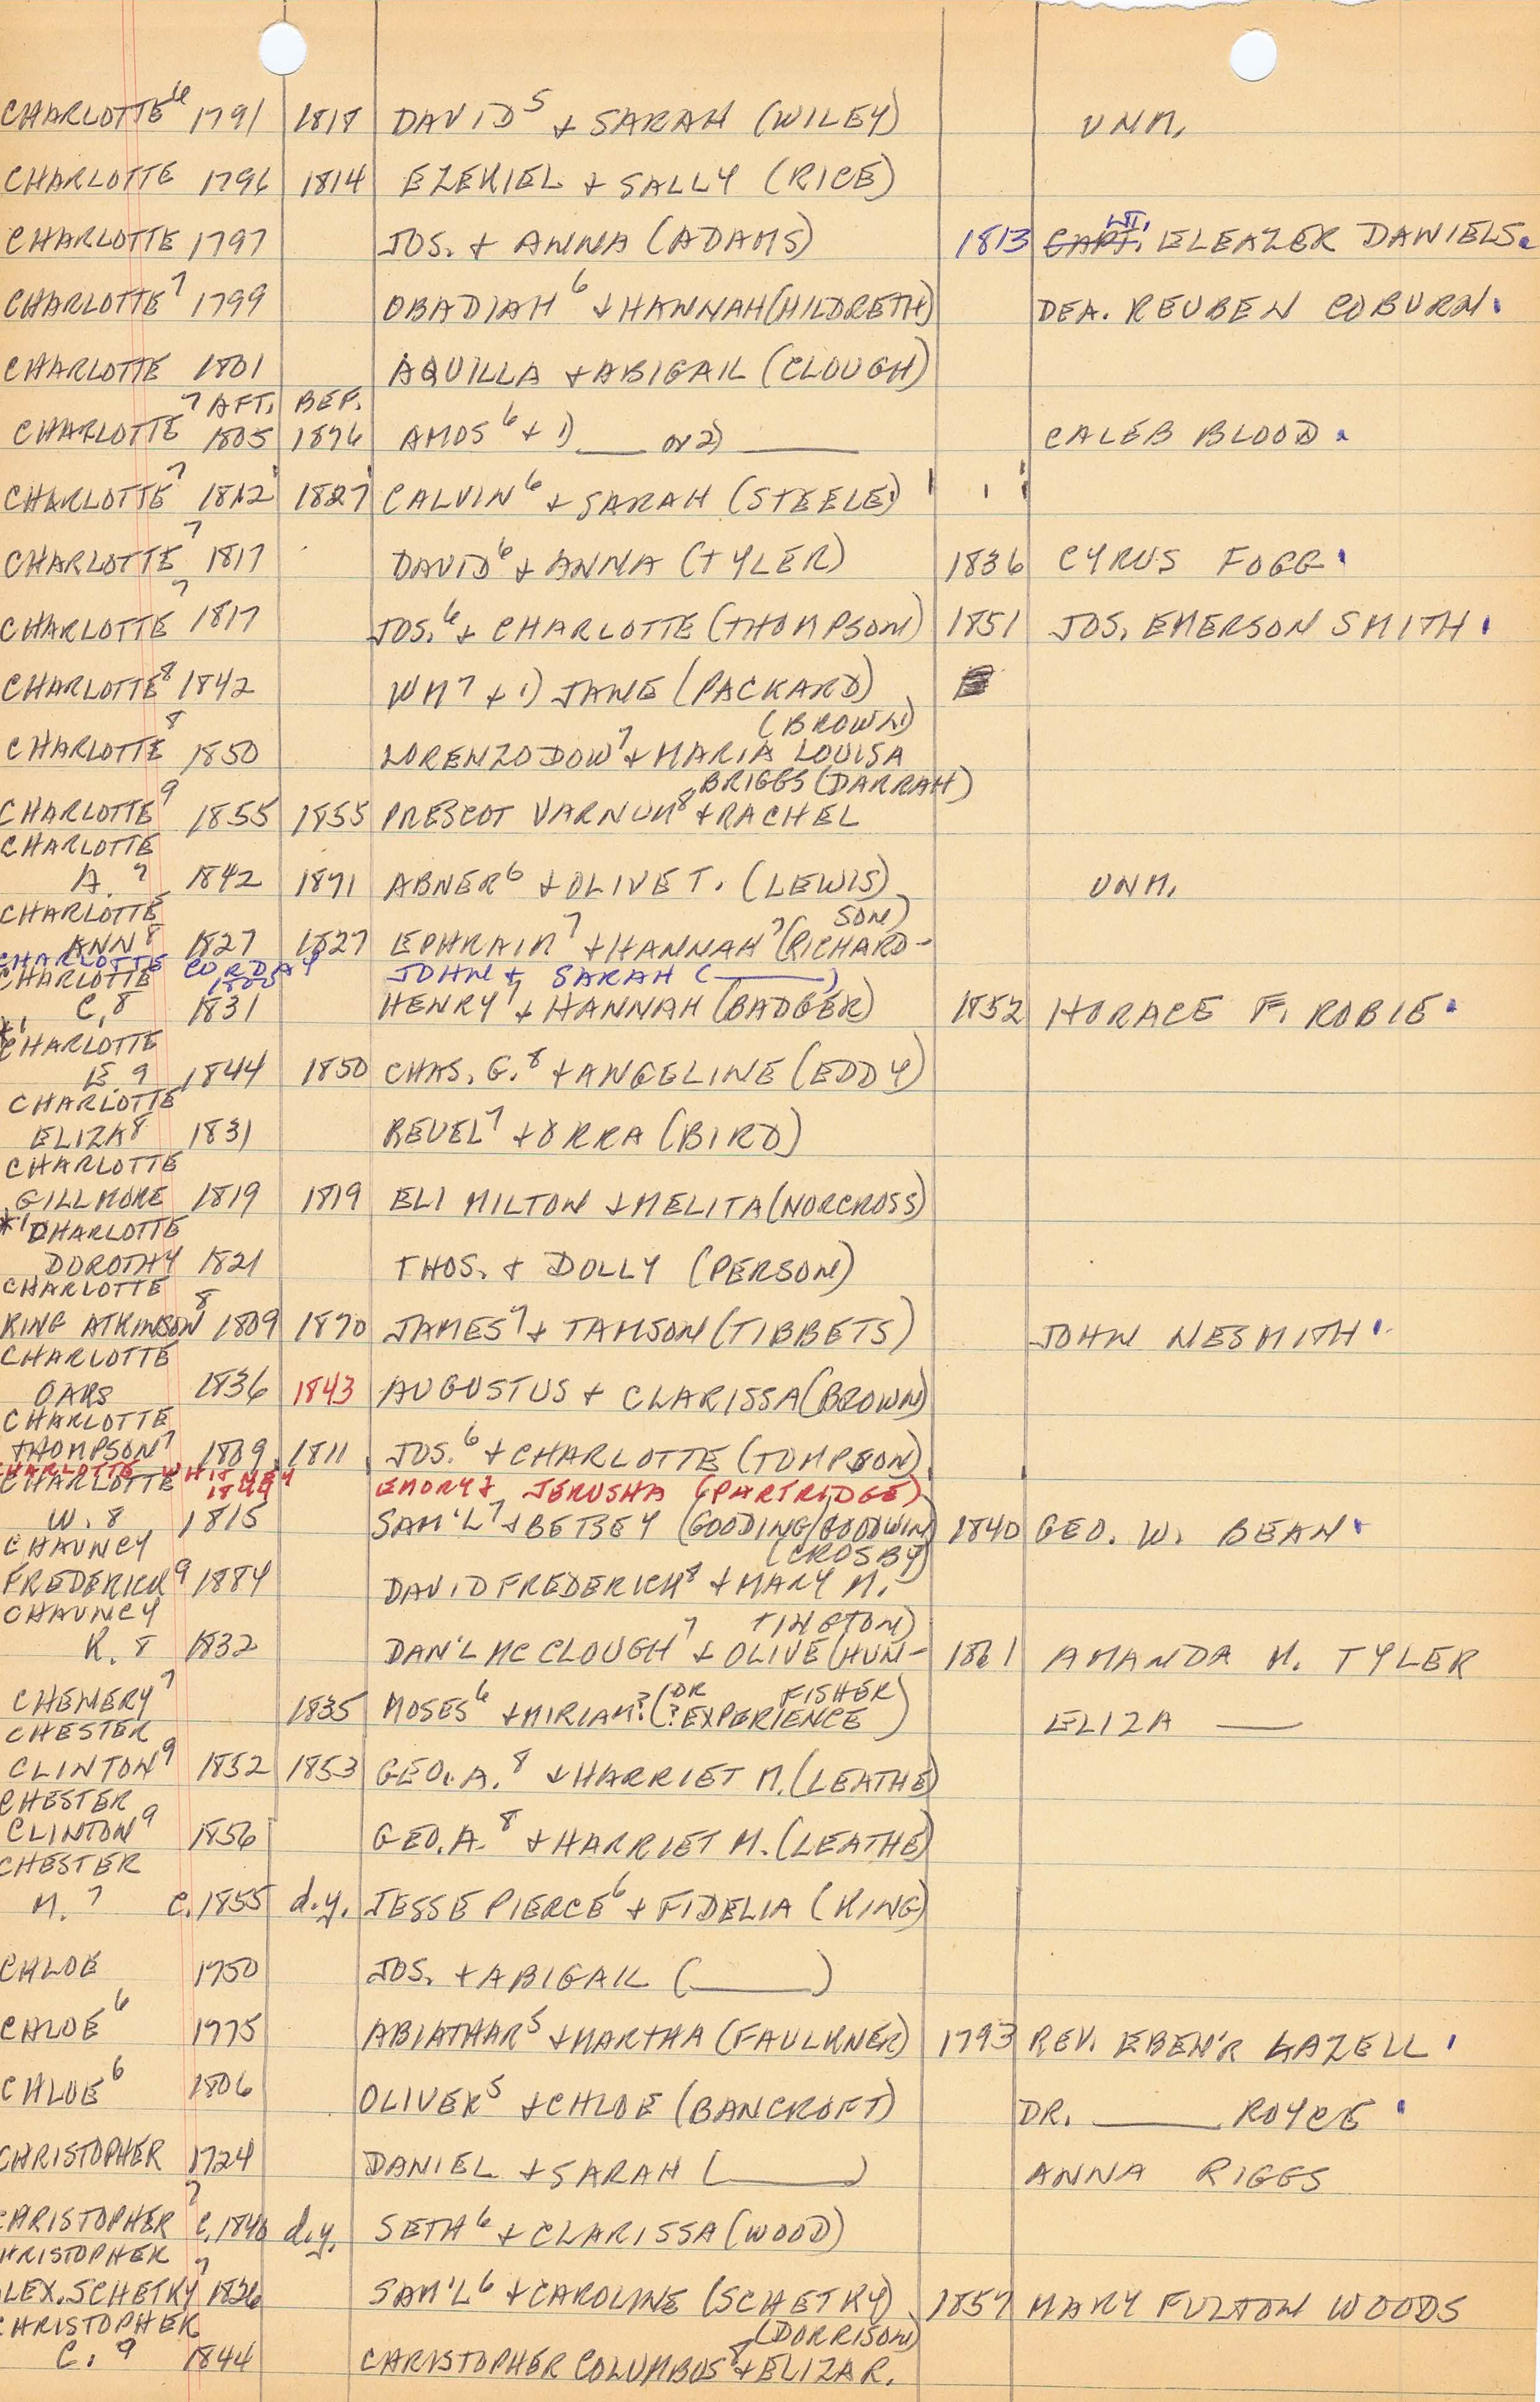 CHARLOTTE⁶ 1791 1818 DAVID⁵ + SARAH (WILEY) UNM.
CHARLOTTE 1796 1814 EZEKIEL + SALLY (RICE)
LT.
CHARLOTTE 1797 JOS. + ANNA (ADAMS) 1813 CAPT. ELEAZER DANIELS.
CHARLOTTE⁷ 1799 OBADIAH⁶ + HANNAH (HILDRETH) DEA. REUBEN COBURN.
CHARLOTTE 1801 AQUILLA + ABIGAIL (CLOUGH)
AFT. BEF.
CHARLOTTE⁷ 1805 1876 AMOS⁶ + 1) ___ or 2) ______ CALEB BLOOD.
CHARLOTTE⁷ 1812 1827 CALVIN⁶ + SARAH (STEELE)
CHARLOTTE⁷ 1817 DAVID⁶ + ANNA (TYLER) 1836 CYRUS FOGG.
CHARLOTTE⁷ 1817 JOS.⁶ + CHARLOTTE (THOMPSON) 1851 JOS. EMERSON SMITH.
CHARLOTTE⁸ 1842 WM⁷ + 1) JANE (PACKARD)
(BROWN)
CHARLOTTE⁸ 1850 LORENZO DOW⁷ + MARIA LOUISA
BRIGGS (DARRAH)
CHARLOTTE⁹ 1855 1855 PRESCOT VARNUM⁸ + RACHEL
CHARLOTTE
A. 7 1842 1871 ABNER⁶ + OLIVE T. (LEWIS) UNM.
CHARLOTTE SON)
ANN⁸ 1827 1827 EPHRAIM⁷ + HANNAH⁷ (RICHARD-
CHARLOTTE CORDAY JOHN + SARAH (______)
CHARLOTTE 1800
C.8 1831 HENRY⁷ + HANNAH (BADGER) 1852 HORACE F. ROBIE.
CHARLOTTE
E. 9 1844 1850 CHAS. G.⁸ + ANGELINE (EDDY)
CHARLOTTE
ELIZA⁸ 1831 REUEL⁷ + ORRA (BIRD)
CHARLOTTE
GILLMORE 1819 1819 ELI MILTON + MELITA (NORCROSS)
*' CHARLOTTE
DOROTHY 1821 THOS. + DOLLY (PERSON)
CHARLOTTE
KING ATKINSON⁸ 1809 1870 JAMES⁷ + TAMSON (TIBBETS) JOHN NESMITH.
CHARLOTTE
OAKS 1836 1843 AUGUSTUS + CLARISSA (BROWN)
CHARLOTTE
THOMPSON⁷ 1809 1811 JOS.⁶ + CHARLOTTE (TOMPSON)
CHARLOTTE WHITNEY EMORY + JERUSHA (PARTRIDGE)
CHARLOTTE
W. 8 1815 SAM'L⁷ + BETSEY (GOODING/GOODWIN) 1840 GEO. W. BEAN.
CHAUNCY (CROSBY)
FREDERICK⁹ 1884 DAVID FREDERICK⁸ + MARY M.
CHAUNCY TINGTON)
R. 8 1832 DAN'L MC CLOUGH⁷ + OLIVE (HUN- 1861 AMANDA M. TYLER
OR FISHER
CHENERY⁷ 1835 MOSES⁶ + MIRIAM? (?EXPERIENCE) ELIZA ___
CHESTER
CLINTON⁹ 1852 1853 GEO. A.⁸ + HARRIET M. (LEATHE)
CHESTER
CLINTON⁹ 1856 GEO. A.⁸ + HARRIET M. (LEATHE)
CHESTER
M. 7 C. 1855 d.y. JESSE PIERCE⁶ + FIDELIA (KING)
CHLOE 1750 JOS. + ABIGAIL (______)
CHLOE⁶ 1775 ABIATHAR⁵ + MARTHA (FAULKNER) 1793 REV. EBEN'R LAZELL.
CHLOE⁶ 1806 OLIVER⁵ + CHLOE (BANCROFT) DR. ______ ROYCE.
CHRISTOPHER 1724 DANIEL + SARAH (______) ANNA RIGGS
CHRISTOPHER⁷ C. 1840 d.y. SETH⁶ + CLARISSA (WOOD)
HRISTOPHER
LEX. SCHETKY⁷ 1826 SAM'L⁶ + CAROLINE (SCHETKY) 1857 MARY FULTON WOODS
CHRISTOPHER (DORRISON)
C. 9 1844 CHRISTOPHER COLUMBUS⁸ + ELIZA R.